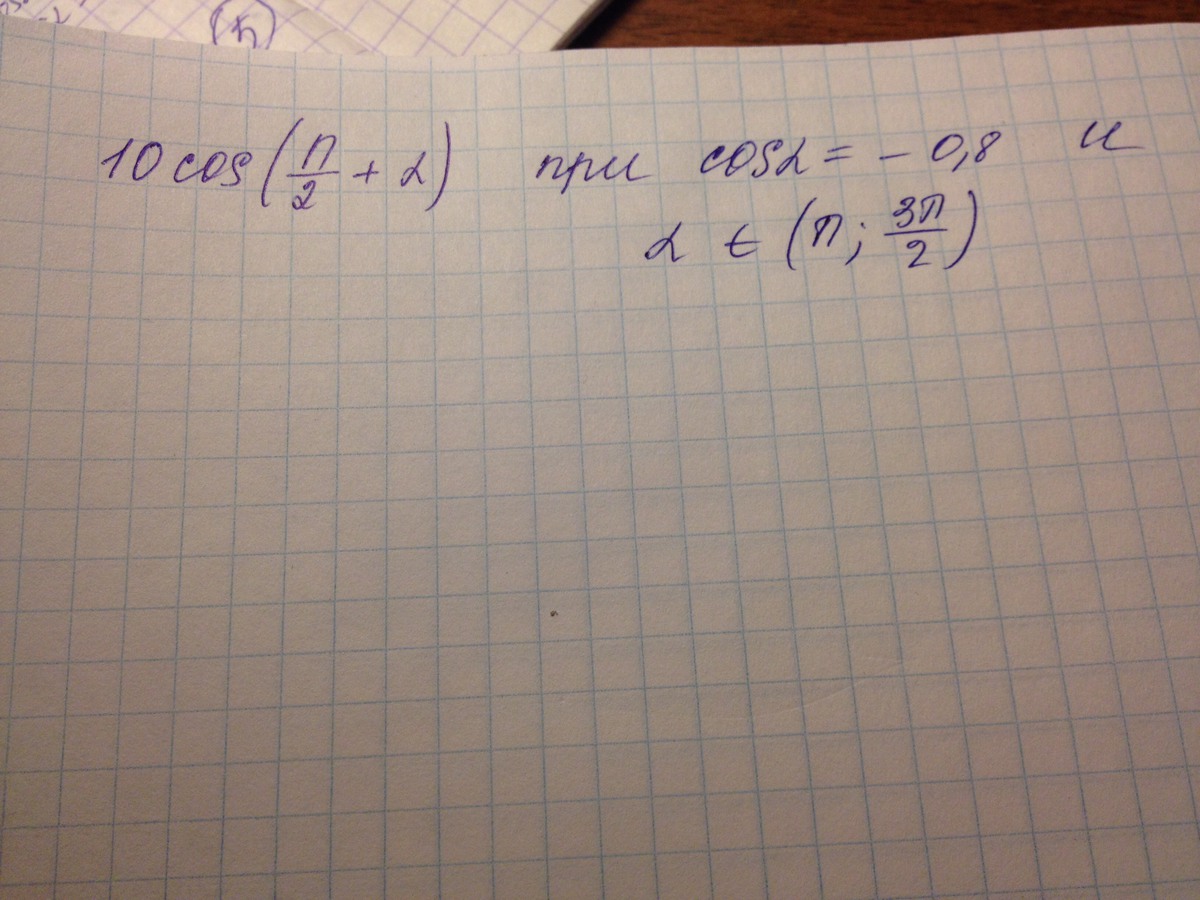 10 cos (π/2 + α) при cos α = - 0,8 и
α ∈ (π; 3π/2)